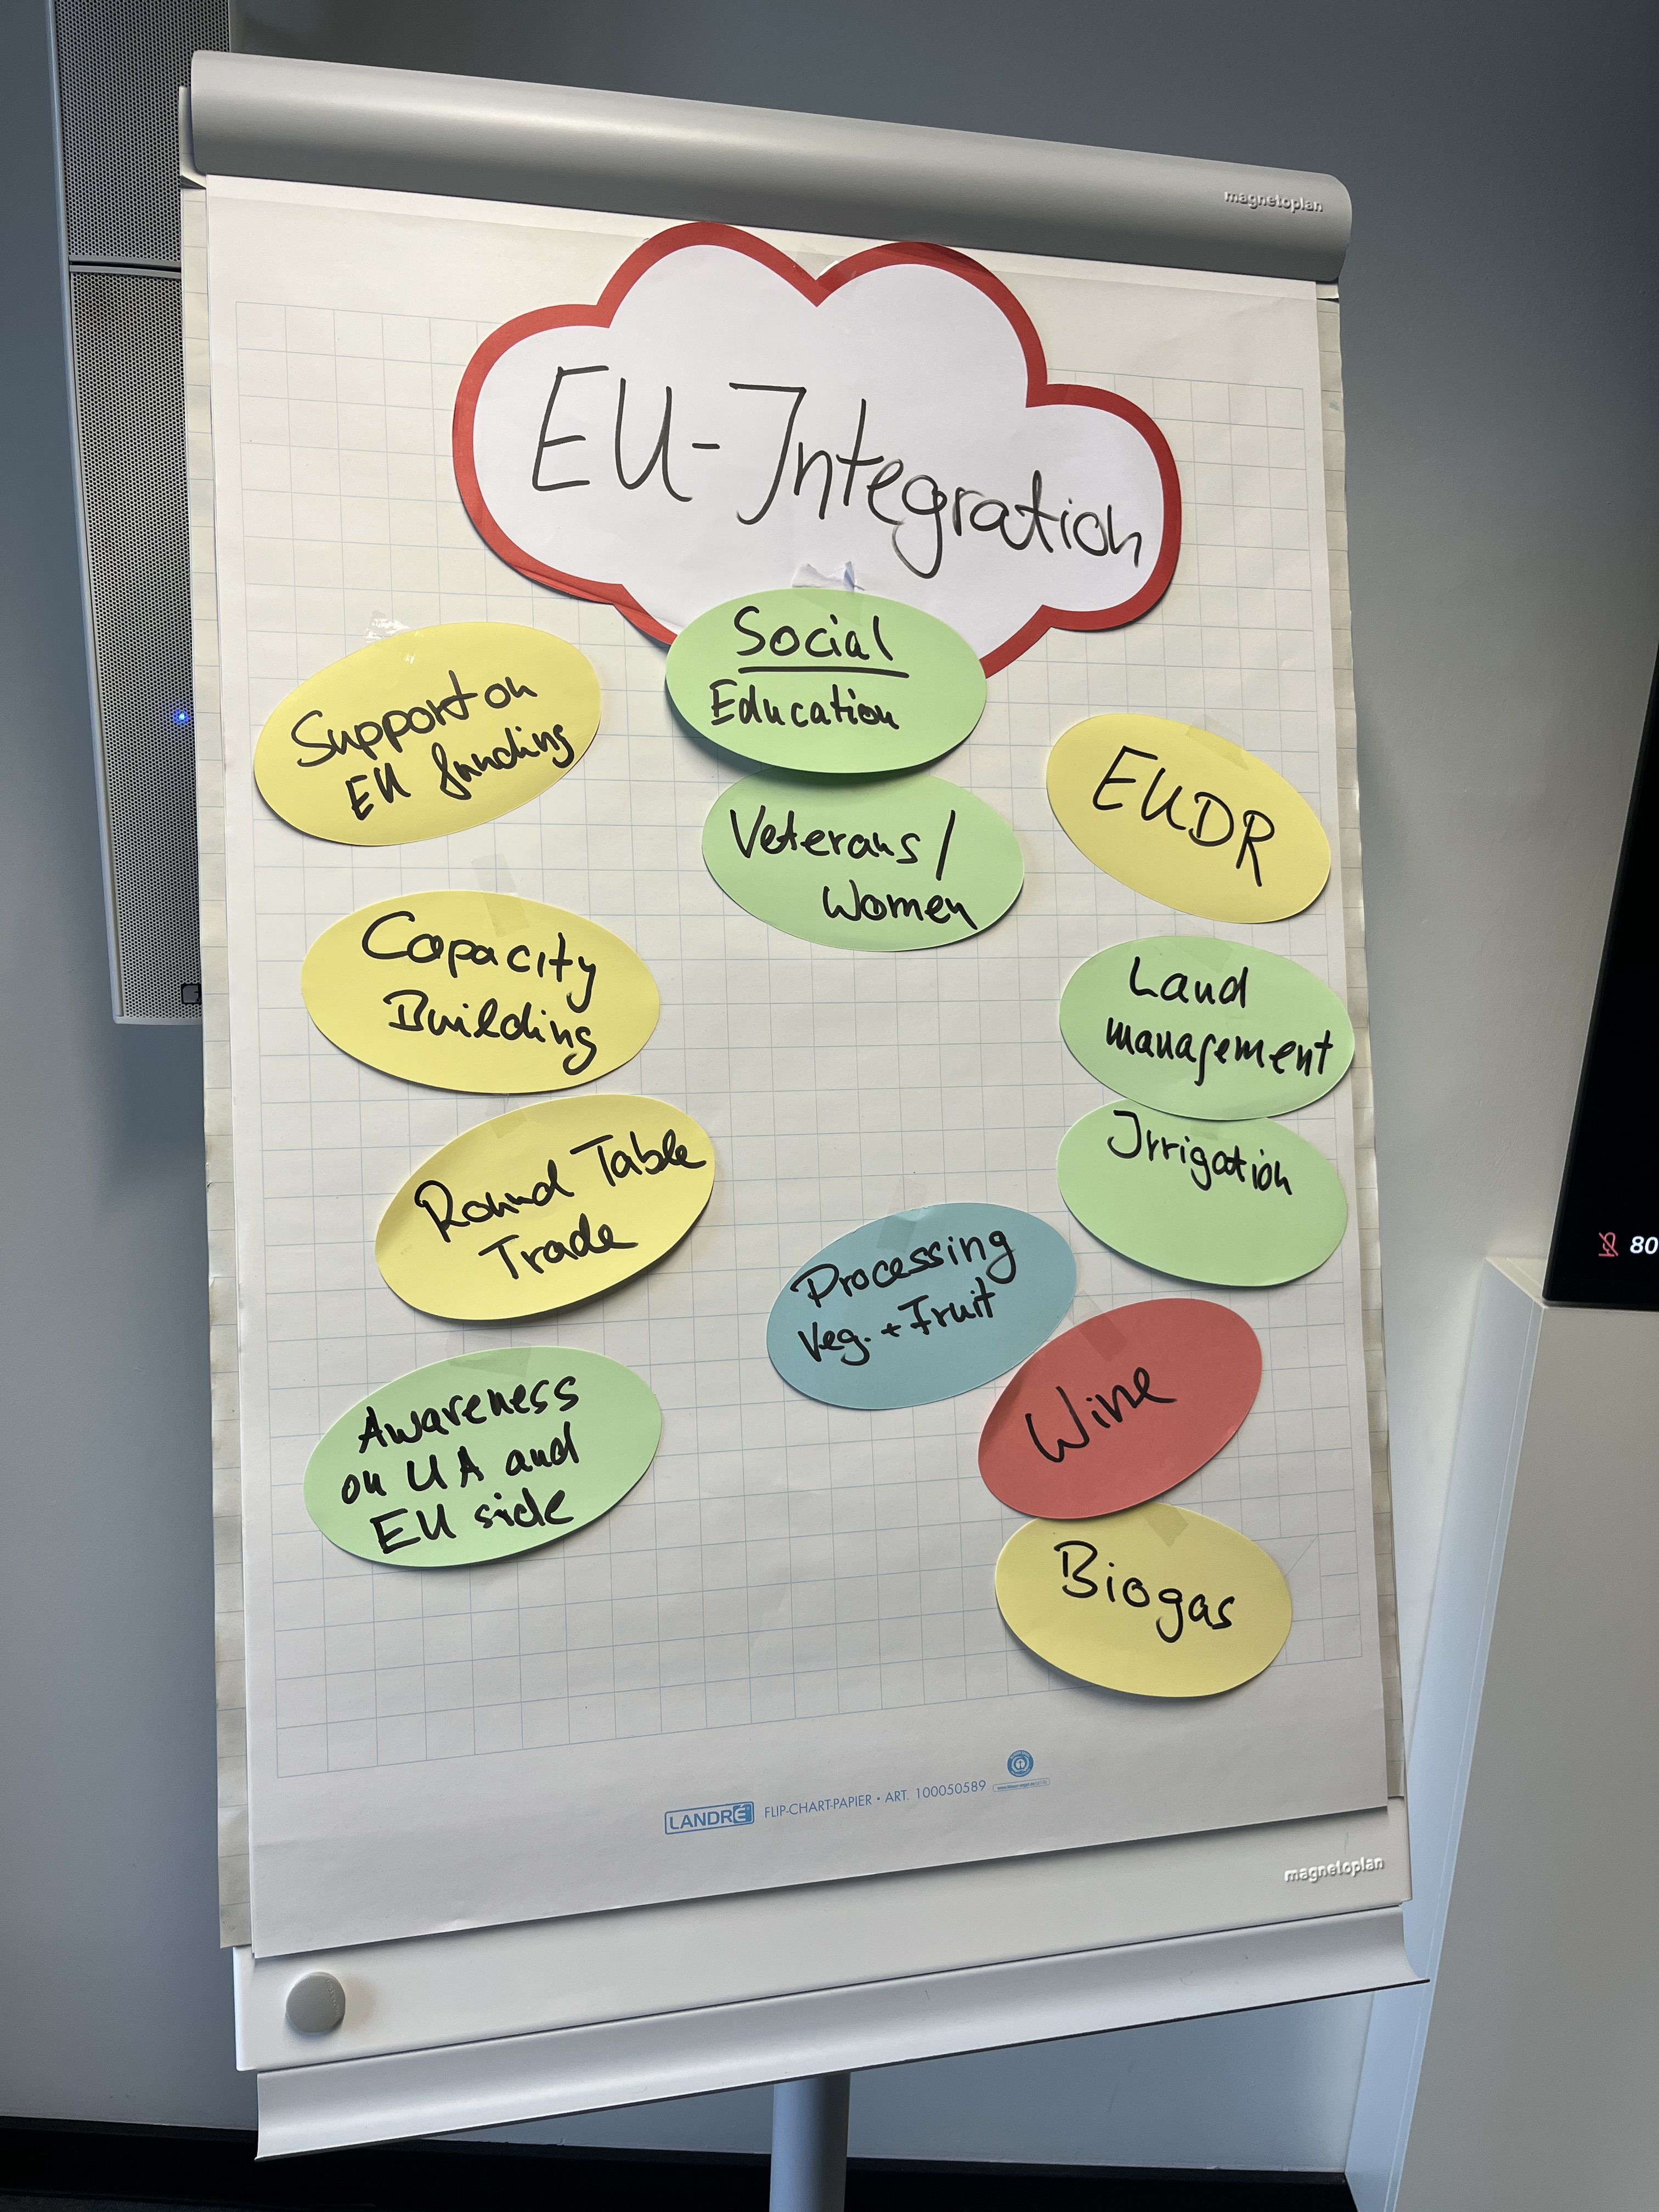 magnetoplan
EU-Integration
Social
Education
Veterans/
Women
Support on
EU funding
Capacity
Building
Round Table
Trade
Awareness
on UA and
EU side
EUDR
Land
management
Irrigation
Processing
Veg. + Fruit
Wine
Biogas
80
LANDRÉ FLIP-CHART-PAPIER • ART. 100050589
magnetoplan